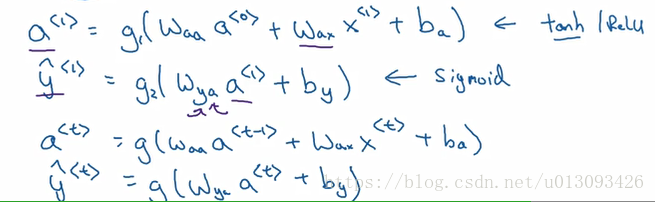 a<1> = g₁(Waa a<0> + Wax x<1> + ba) ← tanh / Relu
ŷ<1> = g₂(Wya a<1> + by) ← sigmoid
a<t> = g(Waa a<t-1> + Wax x<t> + ba)
ŷ<t> = g(Wya a<t> + by)
https://blog.csdn.net/u013093426